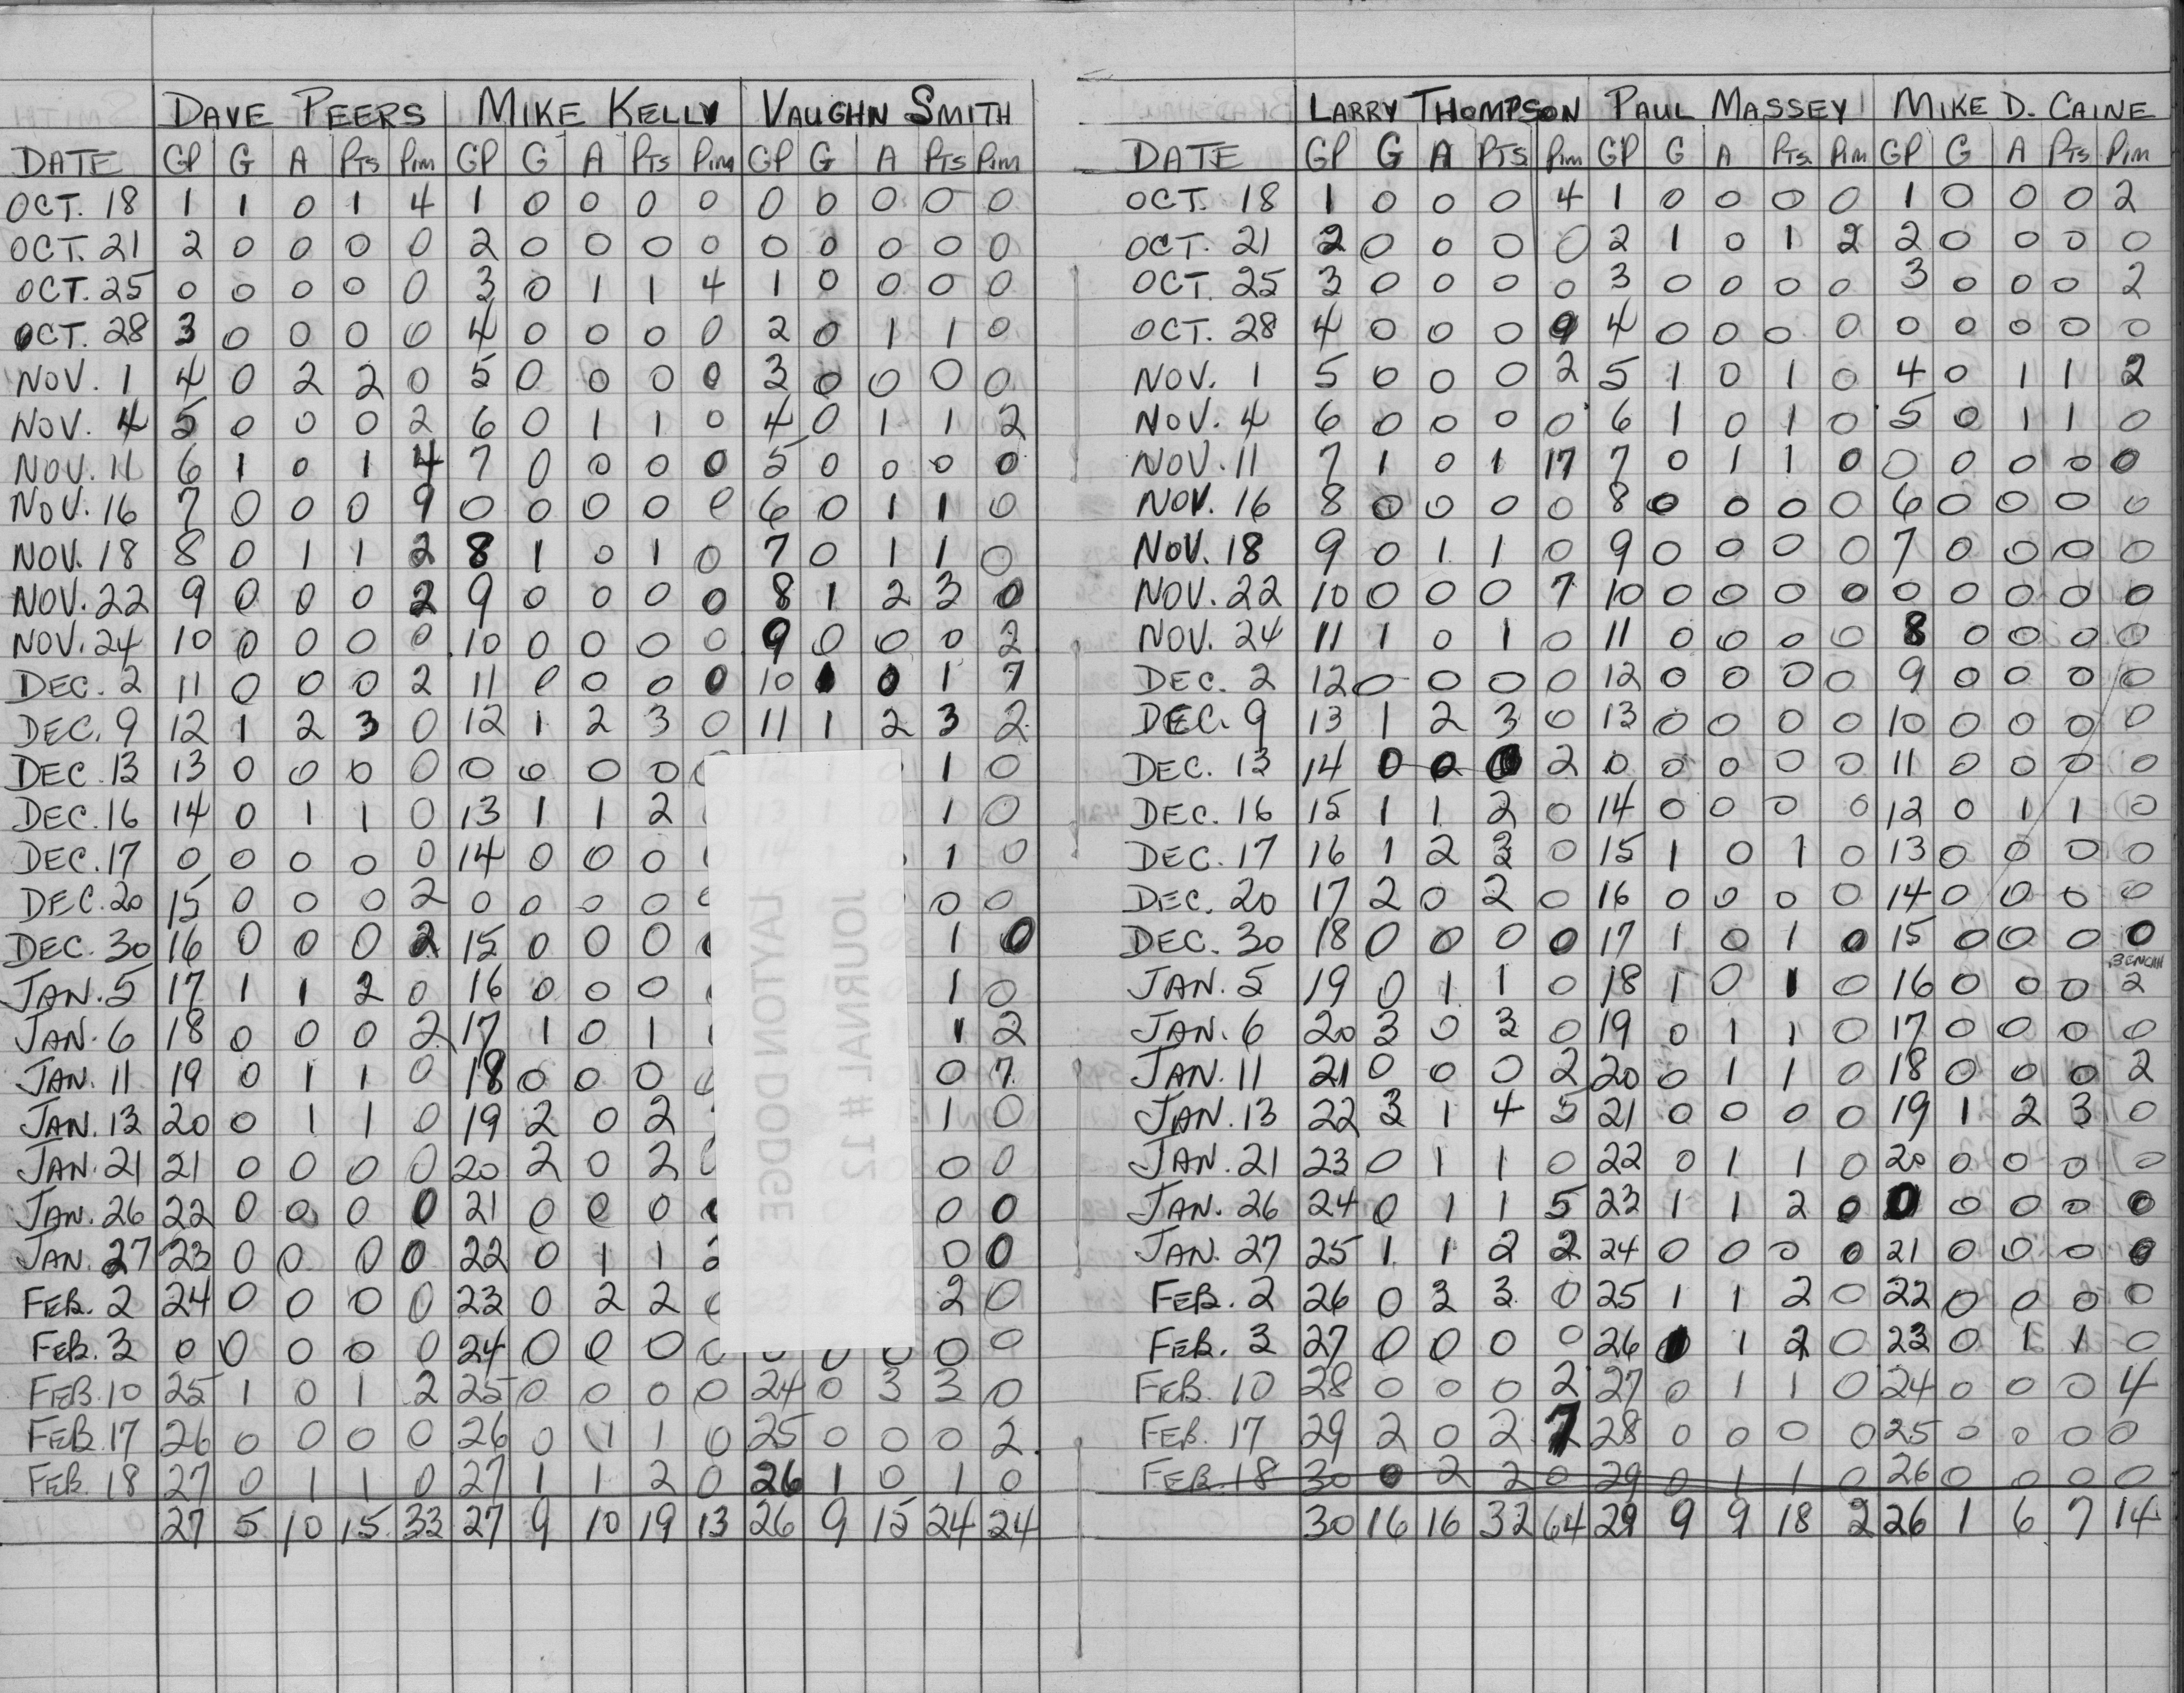 DAVE PEERS MIKE KELLY VAUGHN SMITH
DATE GP G A PTS PIM GP G A PTS PIM GP G A PTS PIM
OCT. 18 1 1 0 1 4 1 0 0 0 0 0 0 0 0 0
OCT. 21 2 0 0 0 0 2 0 0 0 0 0 0 0 0 0
OCT. 25 0 0 0 0 0 3 0 1 1 4 1 0 0 0 0
OCT. 28 3 0 0 0 0 4 0 0 0 0 2 0 1 1 0
NOV. 1 4 0 2 2 0 5 0 0 0 0 3 0 0 0 0
NOV. 4 5 0 0 0 2 6 0 1 1 0 4 0 1 1 2
NOV. 11 6 1 0 1 4 7 0 0 0 0 5 0 0 0 0
NOV. 16 7 0 0 0 9 0 0 0 0 0 6 0 1 1 0
NOV. 18 8 0 1 1 2 8 1 0 1 0 7 0 1 1 0
NOV. 22 9 0 0 0 2 9 0 0 0 0 8 1 2 3 0
NOV. 24 10 0 0 0 0 10 0 0 0 0 9 0 0 0 2
DEC. 2 11 0 0 0 2 11 0 0 0 0 10 1 0 1 7
DEC. 9 12 1 2 3 0 12 1 2 3 0 11 1 2 3 2
DEC. 13 13 0 0 0 0 0 0 0 0 1 0
DEC. 16 14 0 1 1 0 13 1 1 2 1 0
DEC. 17 0 0 0 0 0 14 0 0 0 1 0
DEC. 20 15 0 0 0 2 0 0 0 0 0 0
DEC. 30 16 0 0 0 2 15 0 0 0 1 0
JAN. 5 17 1 1 2 0 16 0 0 0 1 0
JAN. 6 18 0 0 0 2 17 1 0 1 1 2
JAN. 11 19 0 1 1 0 18 0 0 0 0 7
JAN. 13 20 0 1 1 0 19 2 0 2 1 0
JAN. 21 21 0 0 0 0 20 2 0 2 0 0
JAN. 26 22 0 0 0 0 21 0 0 0 0 0
JAN. 27 23 0 0 0 0 22 0 1 1 0 0
FEB. 2 24 0 0 0 0 23 0 2 2 2 0
FEB. 3 0 0 0 0 0 24 0 0 0 0 0
FEB. 10 25 1 0 1 2 25 0 0 0 0 24 0 3 3 0
FEB. 17 26 0 0 0 0 26 0 1 1 0 25 0 0 0 2
FEB. 18 27 0 1 1 0 27 1 1 2 0 26 1 0 1 0
27 5 10 15 33 27 9 10 19 13 26 9 15 24 24
LAYTON DODGE
JOURNAL # 12
LARRY THOMPSON PAUL MASSEY MIKE D. CAINE
DATE GP G A PTS PIM GP G A PTS. PIM GP G A PTS PIM
OCT. 18 1 0 0 0 4 1 0 0 0 0 1 0 0 0 2
OCT. 21 2 0 0 0 0 2 1 0 1 2 2 0 0 0 0
OCT. 25 3 0 0 0 0 3 0 0 0 0 3 0 0 0 2
OCT. 28 4 0 0 0 9 4 0 0 0 0 0 0 0 0 0
NOV. 1 5 0 0 0 2 5 1 0 1 0 4 0 1 1 2
NOV. 4 6 0 0 0 0 6 1 0 1 0 5 0 1 1 0
NOV. 11 7 1 0 1 17 7 0 1 1 0 0 0 0 0 0
NOV. 16 8 0 0 0 0 8 0 0 0 0 6 0 0 0 0
NOV. 18 9 0 1 1 0 9 0 0 0 0 7 0 0 0 0
NOV. 22 10 0 0 0 7 10 0 0 0 0 0 0 0 0 0
NOV. 24 11 1 0 1 0 11 0 0 0 0 8 0 0 0 0
DEC. 2 12 0 0 0 0 12 0 0 0 0 9 0 0 0 0
DEC. 9 13 1 2 3 0 13 0 0 0 0 10 0 0 0 0
DEC. 13 14 0 0 0 2 0 0 0 0 0 11 0 0 0 0
DEC. 16 15 1 1 2 0 14 0 0 0 0 12 0 1 1 0
DEC. 17 16 1 2 3 0 15 1 0 1 0 13 0 0 0 0
DEC. 20 17 2 0 2 0 16 0 0 0 0 14 0 0 0 0
DEC. 30 18 0 0 0 0 17 1 0 1 0 15 0 0 0 0
JAN. 5 19 0 1 1 0 18 1 0 1 0 16 0 0 0 2
JAN. 6 20 3 0 3 0 19 0 1 1 0 17 0 0 0 0
JAN. 11 21 0 0 0 2 20 0 1 1 0 18 0 0 0 2
JAN. 13 22 3 1 4 5 21 0 0 0 0 19 1 2 3 0
JAN. 21 23 0 1 1 0 22 0 1 1 0 20 0 0 0 0
JAN. 26 24 0 1 1 5 23 1 1 2 0 0 0 0 0 0
JAN. 27 25 1 1 2 2 24 0 0 0 0 21 0 0 0 0
FEB. 2 26 0 3 3 0 25 1 1 2 0 22 0 0 0 0
FEB. 3 27 0 0 0 0 26 1 1 2 0 23 0 1 1 0
FEB. 10 28 0 0 0 2 27 0 1 1 0 24 0 0 0 4
FEB. 17 29 2 0 2 7 28 0 0 0 0 25 0 0 0 0
FEB. 18 30 0 2 2 0 29 0 1 1 0 26 0 0 0 0
30 16 16 32 64 29 9 9 18 2 26 1 6 7 14